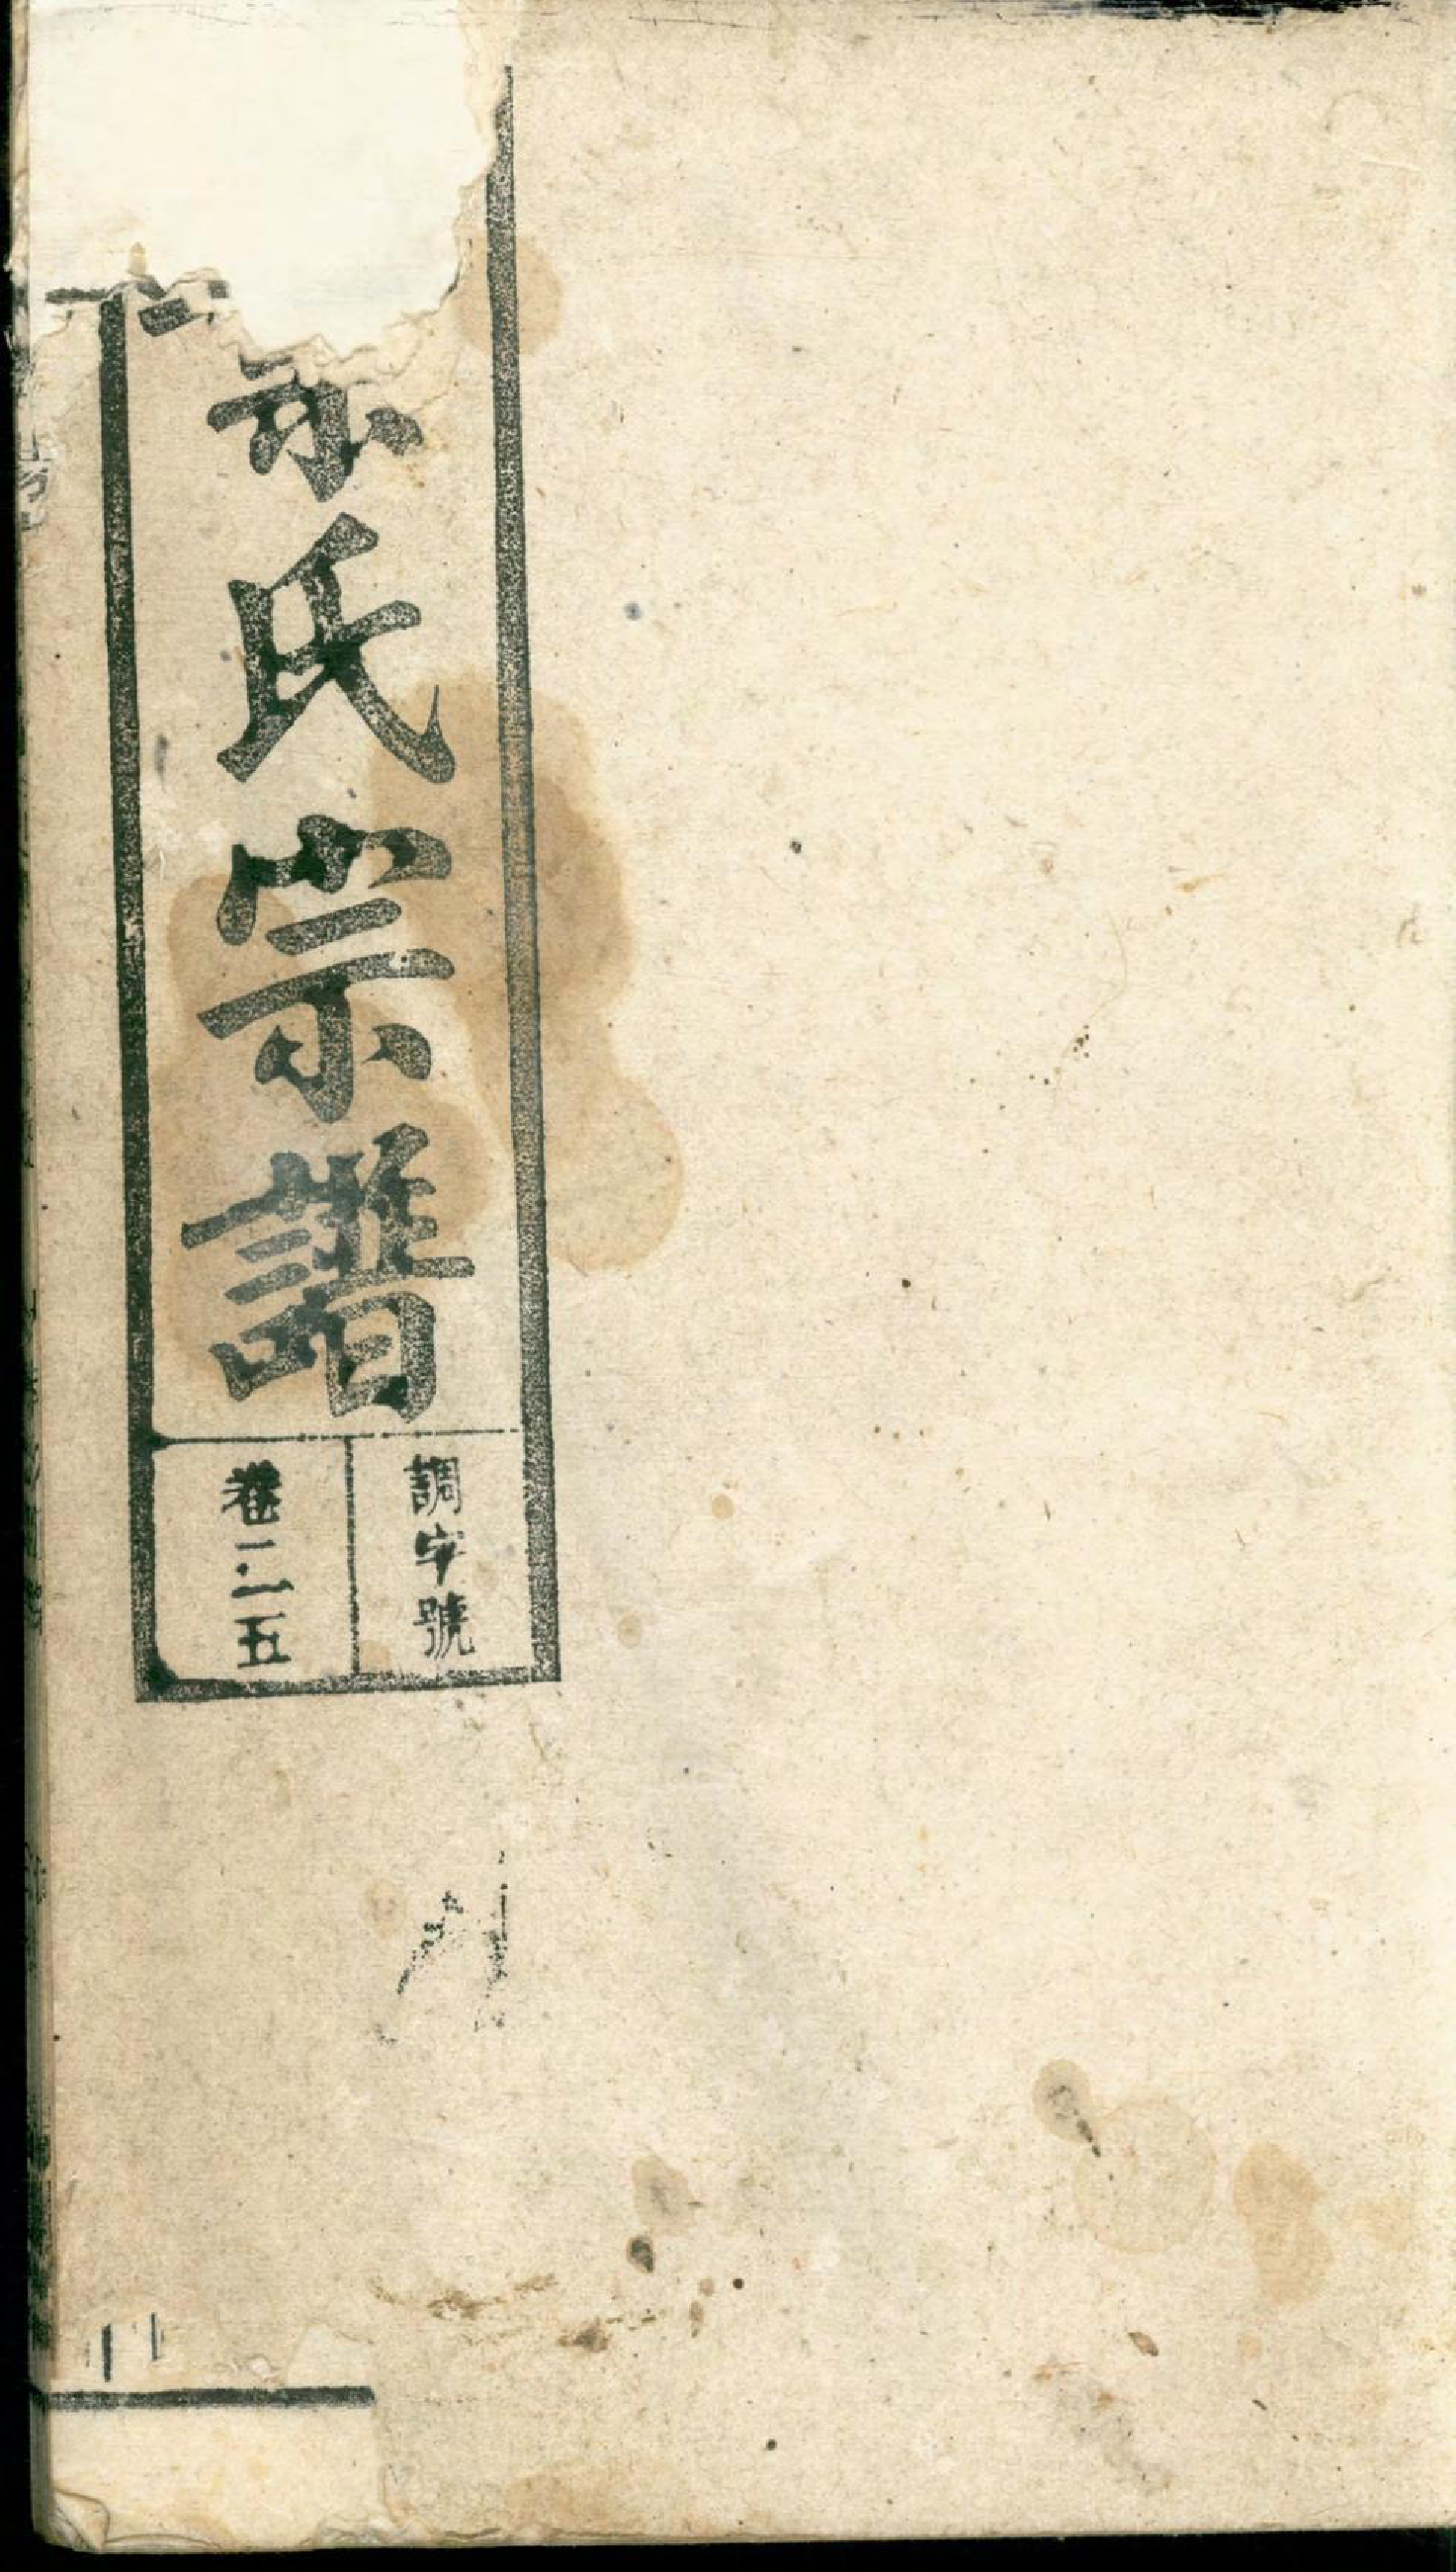 氏宗譜
調字號
卷三五